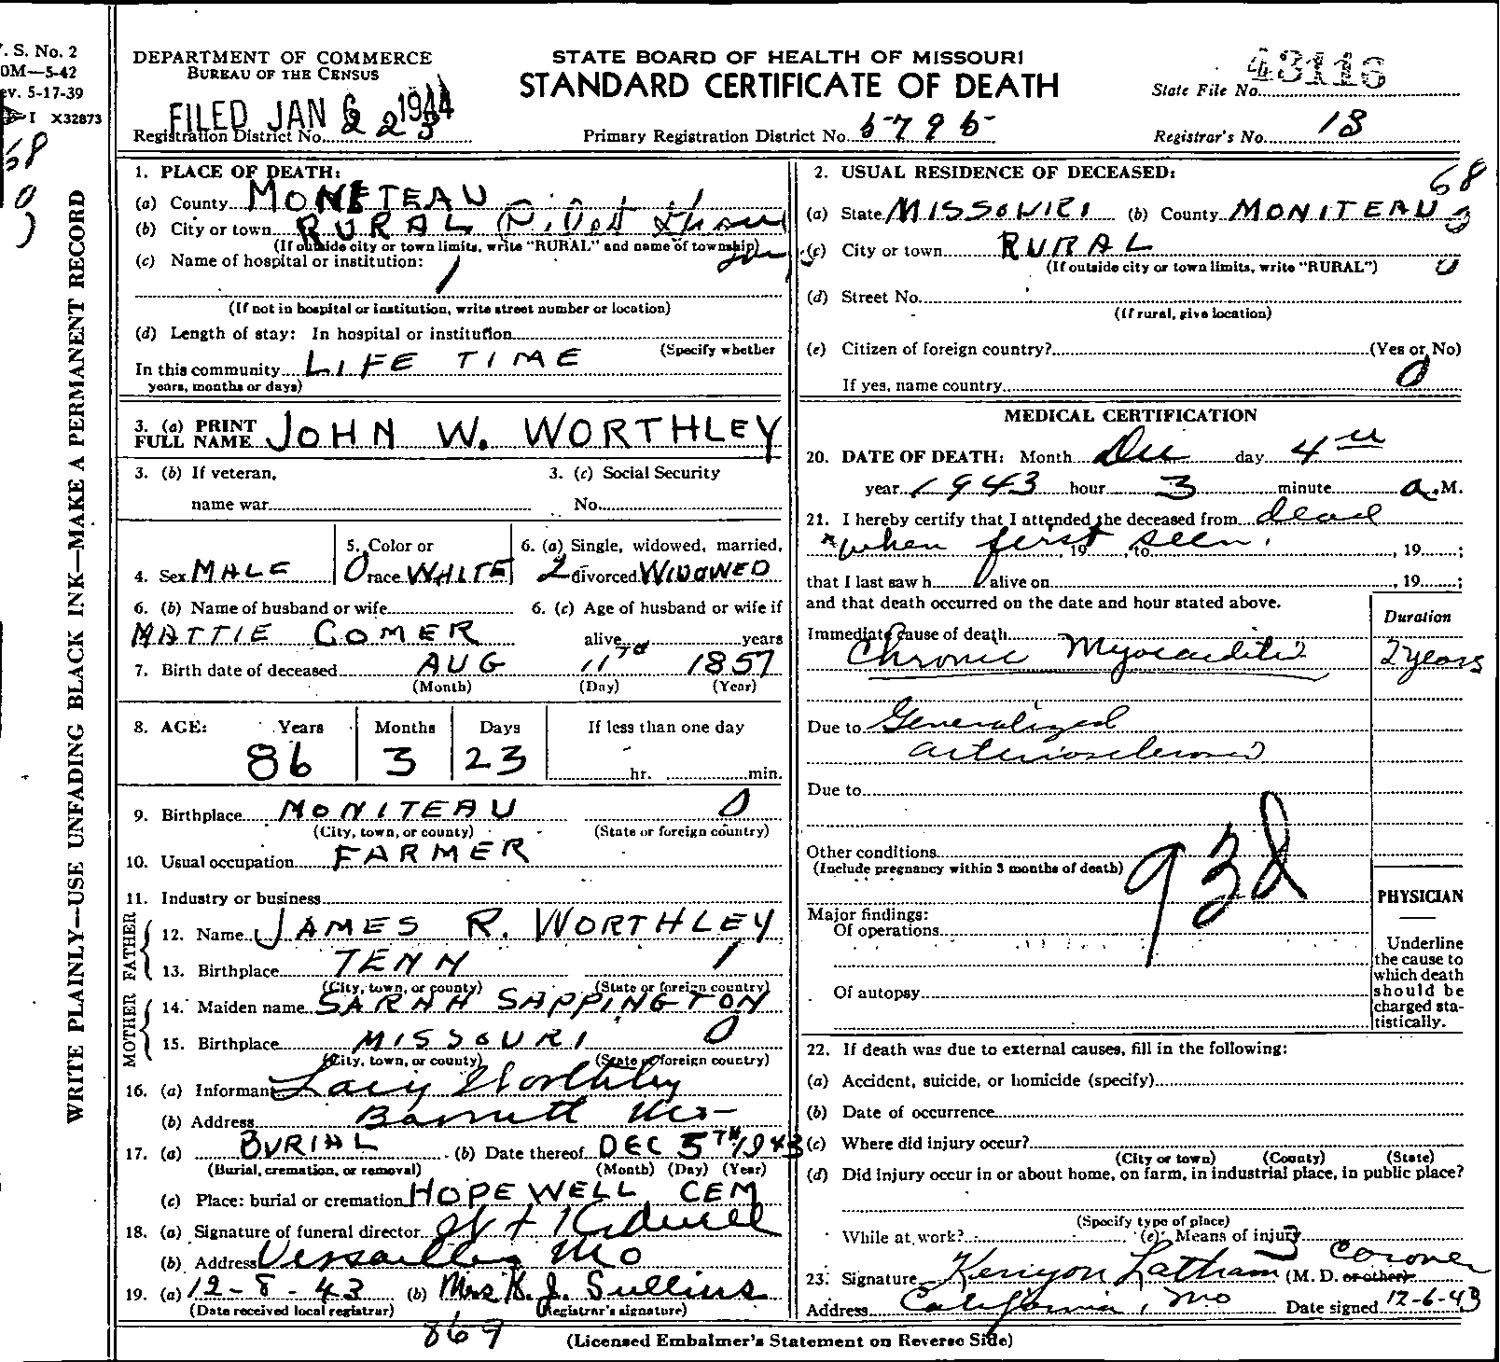 V. S. No. 2
0M—5-42
ev. 5-17-39
I X32873
WRITE PLAINLY—USE UNFADING BLACK INK—MAKE A PERMANENT RECORD
DEPARTMENT OF COMMERCE
BUREAU OF THE CENSUS
STATE BOARD OF HEALTH OF MISSOURI
STANDARD CERTIFICATE OF DEATH
State File No. 43116
FILED JAN 6 1944
Registration District No. 223
Primary Registration District No. 5795
Registrar's No. 18
1. PLACE OF DEATH:
(a) County MONITEAU
(b) City or town RURAL
(If outside city or town limits, write "RURAL" and name of township)
(c) Name of hospital or institution:
(If not in hospital or institution, write street number or location)
(d) Length of stay: In hospital or institution
(Specify whether
In this community LIFE TIME
years, months or days)
2. USUAL RESIDENCE OF DECEASED:
68
(a) State MISSOURI (b) County MONITEAU
(c) City or town RURAL
(If outside city or town limits, write "RURAL")
(d) Street No.
(If rural, give location)
(e) Citizen of foreign country? (Yes or No)
If yes, name country 0
3. (a) PRINT
FULL NAME JOHN W. WORTHLEY
3. (b) If veteran,
name war
3. (c) Social Security
No.
4. Sex MALE
5. Color or
race WHITE
6. (a) Single, widowed, married,
2 divorced WIDOWED
6. (b) Name of husband or wife
MATTIE COMER
6. (c) Age of husband or wife if
alive years
7. Birth date of deceased AUG 11 1857
(Month) (Day) (Year)
8. AGE: Years Months Days If less than one day
86 3 23 hr. min.
9. Birthplace MONITEAU 0
(City, town, or county) (State or foreign country)
10. Usual occupation FARMER
11. Industry or business
FATHER
12. Name JAMES R. WORTHLEY
13. Birthplace TENN 1
(City, town, or county) (State or foreign country)
MOTHER
14. Maiden name SARAH SAPPINGTON
15. Birthplace MISSOURI 0
(City, town, or county) (State or foreign country)
16. (a) Informant Lacy Worthley
(b) Address Barnett Mo
17. (a) BURIAL (b) Date thereof DEC 5TH 1943
(Burial, cremation, or removal) (Month) (Day) (Year)
(c) Place: burial or cremation HOPEWELL CEM
18. (a) Signature of funeral director Kidwell
(b) Address Versailles Mo
19. (a) 12-8-43 (b) Mrs K. J. Sullins
(Date received local registrar) (Registrar's signature)
869
MEDICAL CERTIFICATION
20. DATE OF DEATH: Month Dec day 4th
year 1943 hour 3 minute a.M.
21. I hereby certify that I attended the deceased from dead
when first seen. , 19 to , 19 ;
that I last saw h alive on , 19 ;
and that death occurred on the date and hour stated above.
Duration
Immediate cause of death
Chronic Myocarditis 2 years
Due to Generalized
arteriosclerosis
Due to
Other conditions
(Include pregnancy within 3 months of death)
93d
Major findings:
Of operations
Of autopsy
PHYSICIAN
Underline
the cause to
which death
should be
charged sta-
tistically.
22. If death was due to external causes, fill in the following:
(a) Accident, suicide, or homicide (specify)
(b) Date of occurrence
(c) Where did injury occur?
(City or town) (County) (State)
(d) Did injury occur in or about home, on farm, in industrial place, in public place?
(Specify type of place)
While at work? (e) Means of injury
3 Coroner
23. Signature Kenyon Latham (M. D. or other)
Address California, Mo Date signed 12-6-43
(Licensed Embalmer's Statement on Reverse Side)